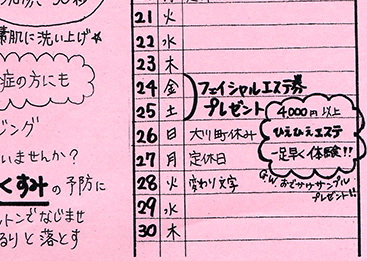 素肌に洗い上げ★
症の方にも
ジング
いませんか?
くすみの予防に
トンでなじませ
るりと落とす
21 火
22 水
23 木
24 金 フェイシャルエステ券
25 土 プレゼント
26 日 大川町休み
27 月 定休日
28 火 変わり文字
29 水
30 木
4000円以上
ひえひえエステ
一足早く体験!!
G.W. おでかけサンプル
プレゼント!!